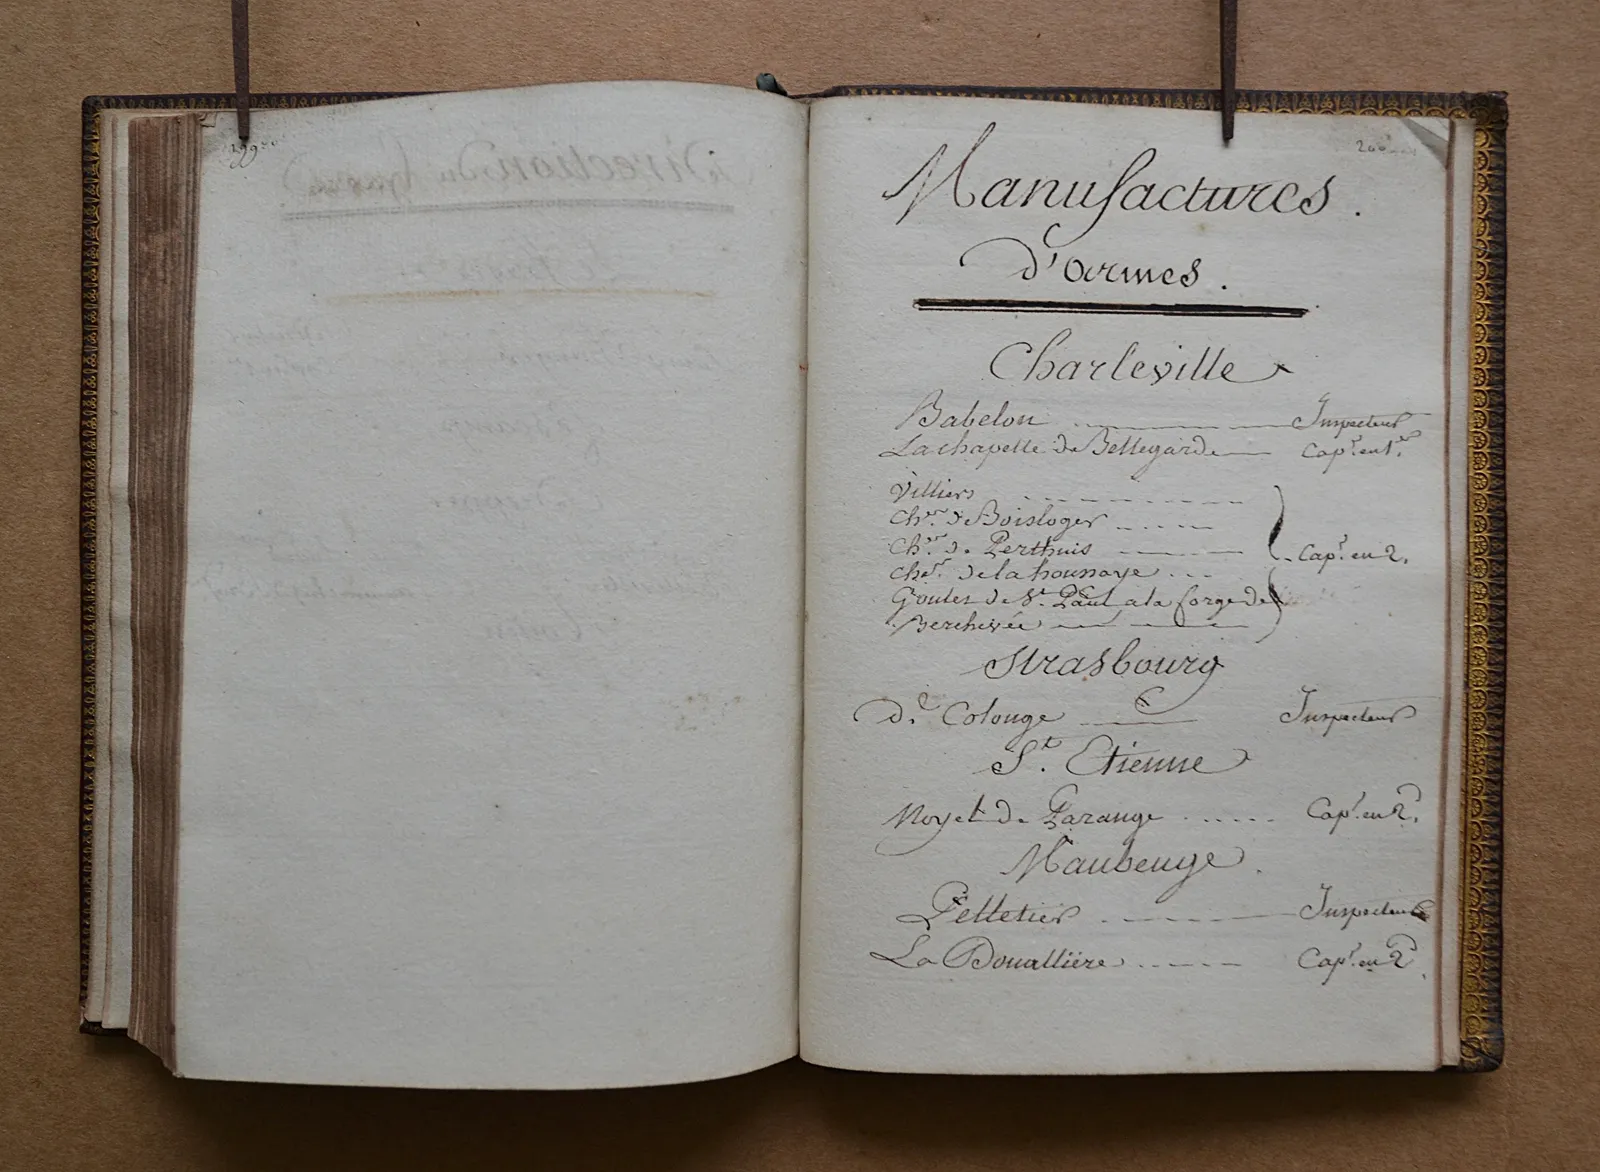 199
200
Manufactures.
d'armes.
Charleville
Babelon Inspecteur
La chapelle de Bellegarde Capne. en 1er.
Villiers
Cher. de Boisloger
Cher. de Perthuis Capne. en 2.
Cher. de la houssaye
Goulet de St. Paul a la forge de
Berchevée
Strasbourg
De. Colonge Inspecteur
St. Etienne
Noyel de Parange Capne. en 2d.
Maubeuge
Pelletier Inspecteur
La Douallière Capne. en 2d.